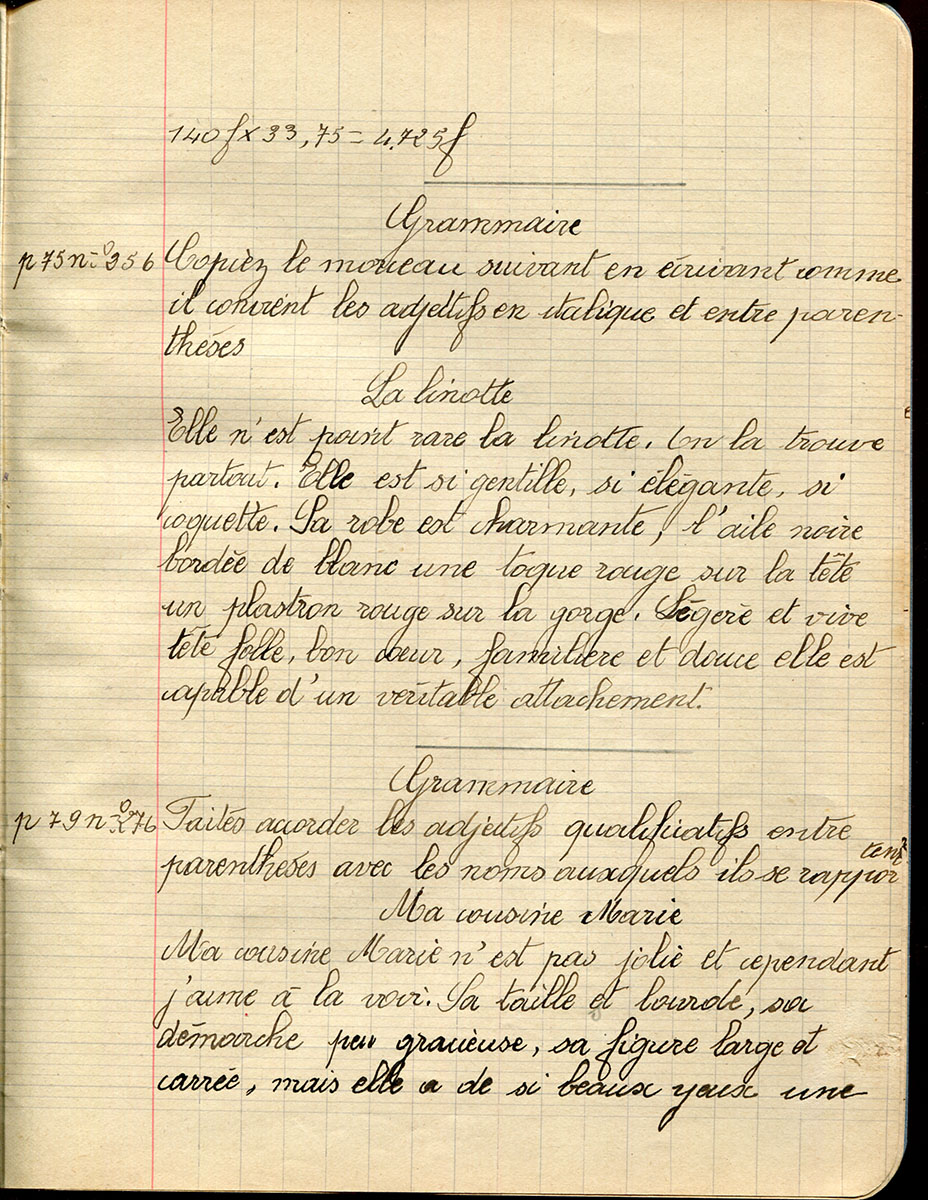 140 f x 33,75 = 4.725 f
Grammaire
p 75 nº 356 Copiez le morceau suivant en écrivant comme
il convient les adjectifs en italique et entre paren-
thésés
La linotte
Elle n'est point rare la linotte. On la trouve
partout. Elle est si gentille, si élégante, si
coquette. Sa robe est charmante, l'aile noire
bordée de blanc une toque rouge sur la tête
un plastron rouge sur la gorge. Légère et vive
tête folle, bon cœur, familière et douce elle est
capable d'un véritable attachement.
Grammaire
p 79 nº 376 Faites accorder les adjectifs qualificatifs entre
parenthésés avec les noms auxquels ils se rappor
tent
Ma cousine Marie
Ma cousine Marie n'est pas jolie et cependant
j'aime à la voir. Sa taille et lourde, sa
démarche peu gracieuse, sa figure large et
carrée, mais elle a de si beaux yeux une